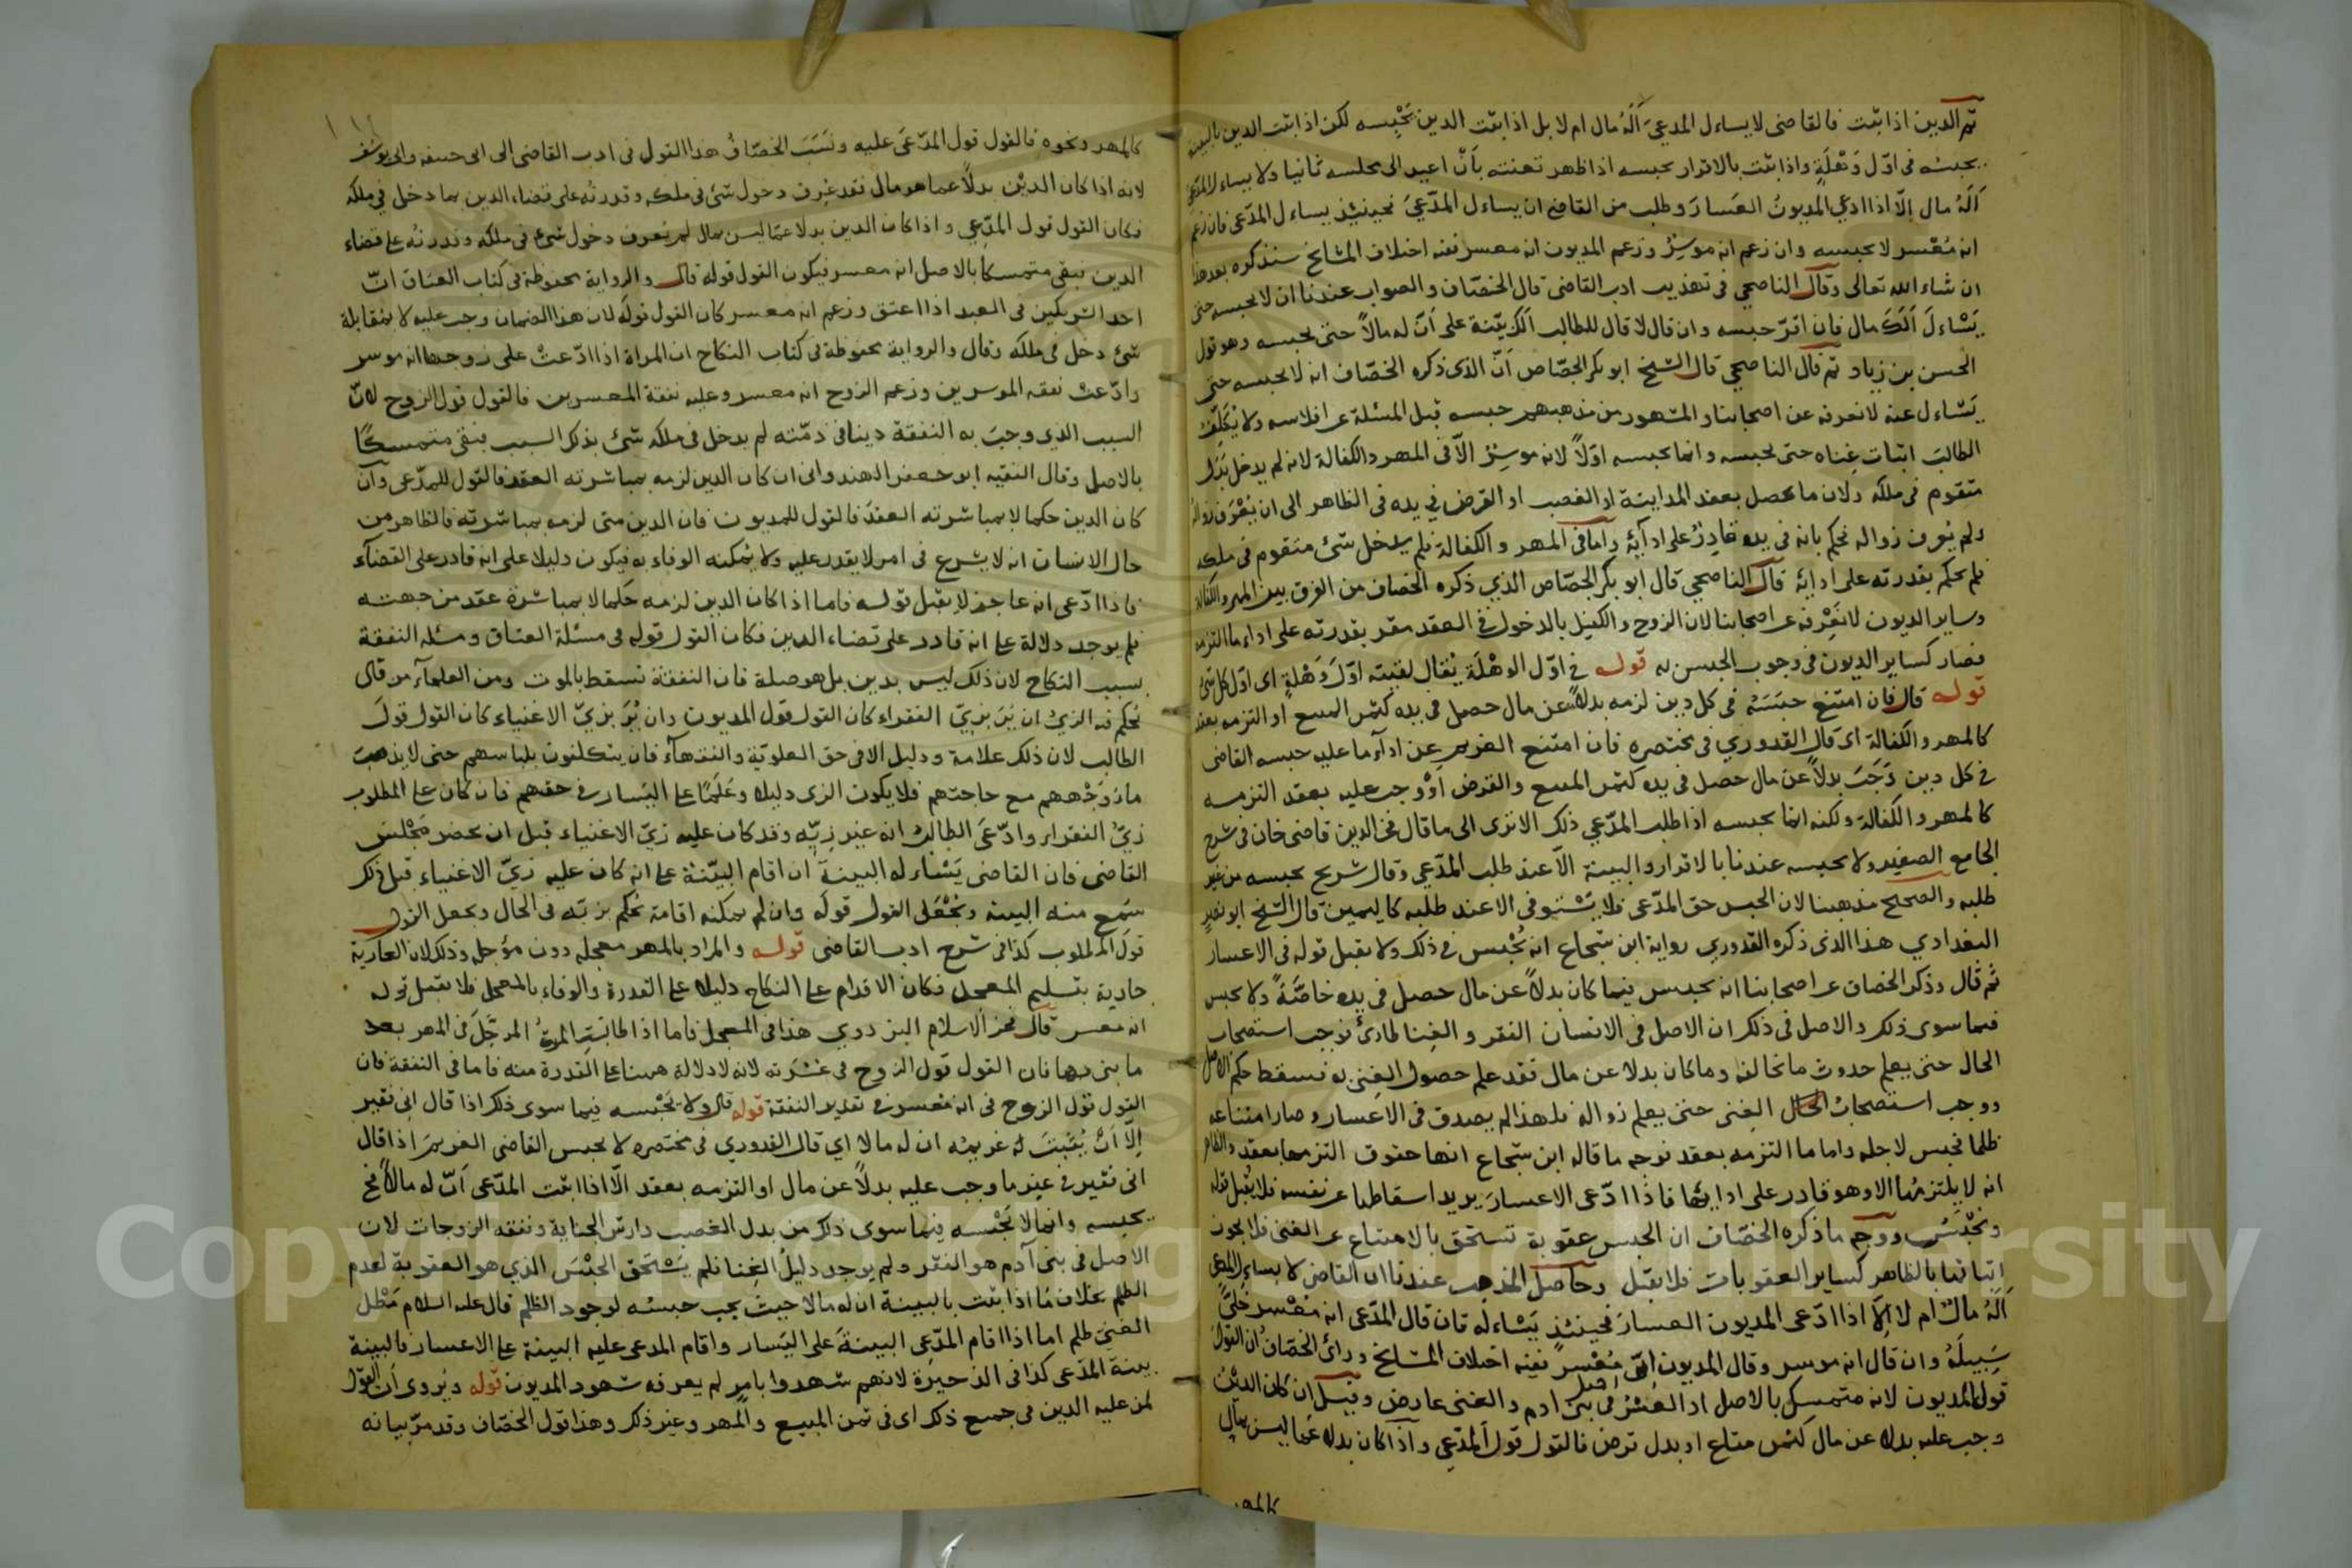 ثم الدين اذا ثبت فالقاضى لا يساءل المدعىَ اَلَهُ مال ام لا بل اذا ثبت الدين يَحْبِسه لكن اذا ثبت الدين بالبينة
يحبسُه فى اوّل وَهْلَةٍ واذا ثبت بالاقرار يحبسه اذا ظهر تعنته بأنْ اعيد الى مجلسه ثانيا ولا يساءل المدّعىَ
اَلَهُ مال اِلّا اذا ادعى المديونُ العسارَ وطلب من القاضى ان يساءل المدّعىَ فحينئذ يساءل المدّعى فان زعم
انه مُعْسر لا يحبسه وان زعم انه موسِرٌ وزعم المديون انه معسر ففيه اختلاف المشايخ سنذكره بعد هذا
ان شاء الله تعالى وقال الناصحي فى تهذيب ادب القاضى قال الخصّاف والصواب عندنا ان لا يحبسه حتى
يَسْاءلَ اَلَكَ مال فان اقرّ حبسه وان قال لا قال للطالب اَلكَ بيّنة على اَنّ له مالاً حتى يحبسه وهو قول
الحسن بن زياد ثم قال الناصحي قال الشيخ ابو بكر الجصّاص اَنّ الذى ذكره الخصّاف انه لا يحبسه حتى
يَسْاءل عنه لا نعرفه عن اصحابنا والمشهور من مذهبهم حبسه قبل المسئلة عن افلاسه ولا يُكَلِّفُ
الطالبَ اثبات غِناه حتى يحبسه وانما يحبسه اوّلاً لانه موسِرٌ الّا فى المهر والكفالة لانه لم يدخل بَدَل
متقوم فى ملكه ولان ما يحصل بعقد المداينة او الغصب او القرض فى يده فى الظاهر الى ان يُعْرَف زواله
ولم يُعرف زواله نحكم بانه فى يده قادِرٌ على ادآئه وامّا فى المهر والكفالة فلم يدخل شئ متقوم فى ملكه
فلم يحكم بقدرته على ادائه قال الناصحي قال ابو بكر الجصّاص الذي ذكره الخصاف من الفرق بين المهر والكفالة
وساير الديون لا نَعْرِفه عن اصحابنا لان الزوج والكفيل بالدخول فى العقد مقر بقدرته على اداء ما التزمه
فصار كساير الديون فى وجوب الحبس به قوله فى اوّل الوهْلَة يُقال لقيتِه اوّلَ وَهْلةٍ اى اوّل كل شئ
قوله قال فان امتَنع حبَسَهُ فى كل دين لزمه بدلاً عن مال حصل فى يده كثمن المبيع او التزمه بعقد
كالمهر والكفالة اى قال القدوري فى مختصره فان امتنع الغريم عن ادآء ما عليه حبسه القاضى
فى كل دين وَجَبَ بدلاً عن مال حصل فى يده كثمن المبيع والقرض اَوْ وجب عليه بعقد التزمه
كالمهر والكفالة ولكنه انما يحبسه اذا طلب المدّعي ذلك الا ترى الى ما قال فخر الدين قاضى خان فى شرح
الجامع الصغير ولا يحبسه عندنا بالاقرار والبينة الّا عند طلب المدّعي وقال شريح يحبسه من غير
طلبه والصحيح مذهبنا لان الحبس حق المدّعى فلا يُسْتوفى الا عند طلبه كاليمين قال الشيخ ابو نصر
البغدادي هذا الذى ذكره القدوري رواية ابن شجاع انه يُحْبس فى ذلك ولا يقبل قوله فى الاعسار
ثم قال وذكر الخصاف عن اصحابنا انه يحبس فيما كان بدلاً عن مال حصل فى يده خاصَّةً ولا يحبس
فيما سوى ذلك والاصل فى ذلك ان الاصل فى الانسان الفقر والغِنا طارئ فوجب استصحاب
الحال حتى يعلم حدوث ما تخالفه وما كان بدلا عن مال فقد علم حصول الغِنى به فسقط حكم الاصل
ووجب استصحابُ الحال الغِنى حتى يعلم زواله فلهذا لم يصدق فى الاعسار وصار امتناعه
ظلما فحبس لاجله واما ما التزمه بعقد فوجه ما قاله ابن شجاع انها حقوق التزمها بعقد والظاهر
انه لا يلتزمُها الا وهو قادر على ادايها فاذا ادّعى الاعسارَ يريد اسقاطها عن نفسه فلا يُقبل قوله
ويُحْبَسُ ووجه ما ذكره الخصّاف ان الحبس عقوبة تستحق بالامتناع عن الغنى فلا يجوز
اثباتها بالظاهر كساير العقوبات فلا يقبل وحاصل المذهب عندنا ان القاضى لا يساءل المدّعى
اَلَهُ مال ام لا اِلّا اذا ادّعى المديون العسارَ فحينئذٍ يَسْاءله فان قال المدّعى انه مُعْسر خَلّىَ
سَبيلَهُ وان قال انه موسر وقال المديون انى مُعْسرٌ ففيه اختلاف المشايخ وراى الخصّاف ان القول
قول المديون لانه متمسك بالاصل اذ العُسْرُ اصل فى بنى ادم والغنى عارض وقيل ان كان الديْن
وجب عليه بدلا عن مال كثمن متاع او بدل قرض فالقول قول المدّعى واذا كان بدلا عَما ليس بمال
كالمهر
كالمهر ونحوه فالقول قول المدّعَى عليه ونَسَبَ الخصّافُ هذا القول فى ادب القاضى الى ابى حنيفه وابى يوسف
لانه اذا كان الديْن بدلاً عما هو مال فقد عُرِف دخول شئ فى ملكه وقدرتُه على قضاء الدين بما دخل فى ملكه
فكان القول قول المدّعِي واذا كان الدين بدلا عمّا ليس بمال لم يُعرف دخول شئ فى ملكه وقدرتُه على قضاء
الدين فبقى متمسكا بالاصل انه معسر فيكون القول قوله قال والرواية محفوظة فى كتاب العتاق انّ
احد الشريكين فى العبد اذا اعتق وزعم انه معسر كان القول قولَه لان هذا الضمان وجب عليه لا بمقابلة
شئ دخل فى ملكه وقال والرواية محفوظة فى كتاب النكاح ان المراة اذا ادّعتْ على زوجها انه موسر
وادّعت نفقه الموسرين وزعم الزوج انه معسر وعليه نفقة المعسرين فالقول قول الزوج لانّ
السبب الذي وجبَ به النفقة دينا فى ذمّته لم يدخل فى ملكه شئ بذلك السبب فبقى متمسكًا
بالاصل وقال الفقيه ابو جعفر الهندوانى ان كان الدين لزمه بمباشرته العقد فالقول للمدّعى وان
كان الدين حكما لا بمباشرته العقدَ فالقول للمديون فان الدين متى لزمه بمباشرته فالظاهر من
حال الانسان انه لا يشرع فى امر لا يقدر عليه ولا يُمكنه الوفاء به فيكون دليلا على انه قادر على القضآء
فاذا ادّعى انه عاجز لا يقبل قوله فاما اذا كان الدين لزمه حكما لا بمباشرة عقد من جهته
فلم يوجد دلالة على انه قادر على قضاء الدين فكان القول قوله فى مسئلة العتاق ومسئله النفقة
بسبب النكاح لان ذلك ليس بدين بل هو صلة فان النفقة تسقط بالموت ومن العلمآء من قال
يُحكم فيه الزىُّ ان يُرَ بزيّ الفقراء كان القول قول المديون وان يُرَ بزيّ الاغنياء كان القول قولَ
الطالب لان ذلك علامة ودليل الا فى حق العلويّة والفقهآء فان يتكلفون بلباسهم حتى لا يذهبَ
ماءُ وَجْههم مع حاجتهم فلا يكون الزى دليلا وعَلَمًا على اليَسار فى حقهم فان كان على المطلوب
زيُّ الفقراء وادّعَى الطالبُ انه غير زيّه وقد كان عليه زيّ الاغنياء قبل ان يحضر مَجْلسَ
القاضى فان القاضى يَسْاءله البينةَ ان اقام البيّنة على انه كان عليه زيّ الاغنياء قبل ذلك
سَمع منه البينه ويُجْعَل القول قولَه وان لم يمكنه اقامة يحكم بزيّه فى الحال ويجعل القول
قولَ المطلوب كذا فى شرح ادب القاضى قوله والمراد بالمهر معجله دون مؤجله وذلك لان العادَة
جارية بتسليم المعجل فكان الاقدام على النكاح دليلا على القدرة والوفاء بالمعجل فلا يقبل قوله
انه معسر قال فخر الاسلام البزدوي هذا فى المعجل فاما اذا طالبَتِ المرأةُ المؤجّلَ فى المهر بعد
ما بنى بها فان القول قول الزوج فى عُسْرته لانه لا دلالة ههنا على القدرة منه فاما فى النفقة فان
القول قوْل الزوج فى انه مُعسر فى تقدير النفقة قوله قال ولا يَحْبسه فيما سوى ذلك اذا قال انى فقير
اِلّا اَنْ يُثْبِتَ له غريمُه ان له مالا اي قال القدوري فى مختصره لا يحبس القاضى الغريمَ اذا قال
انى فقير فى غير ما وجب عليه بدلاً عن مال او التزمه بعقد الّا اذا اثبت المدّعى اَنّ له مالاً فح
يحبسه وانما لا يَحْبْسه فيما سوى ذلك من بدل الغصب وارش الجناية ونفقه الزوجات لان
الاصل فى بنى آدم هو الفقر ولم يوجد دليلُ الغِنا فلم يُسْتَحَق الحَبْسَ الذي هو العقوبة لعدم
الظلم بخلاف مَا اذا ثبت بالبينة ان له مالا حيث يجب حبسُه لوجود الظلم قال عليه السلام مَطْل
الغنىِ ظلم اما اذا اقام المدّعِى البينةَ على اليَسار واقام المدعى عليه البينة على الاعسار فالبينة
بينة المدّعى كذا فى الذخيرة لانهم شهدوا بامر لم يعرفه شهود المديون قوله ويُروى اَن القول
لمن عليه الدين فى جميع ذلك اى فى ثمن المبيع والمهر وغير ذلك وهذا قول الخصّاف وقد مرّ بيانه
Copyright © King Saud University